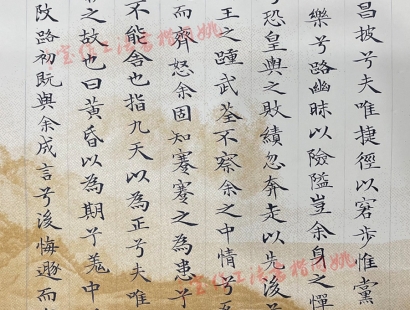 昌披兮夫唯捷徑以窘步惟黨
樂兮路幽昧以險隘豈余身之憚
兮恐皇輿之敗績忽奔走以先後
王之踵武荃不察余之中情兮
而齊怒余固知謇謇之為患兮
不能舍也指九天以為正兮夫唯
之故也曰黃昏以為期兮羌中
改路初既與余成言兮後悔遯而